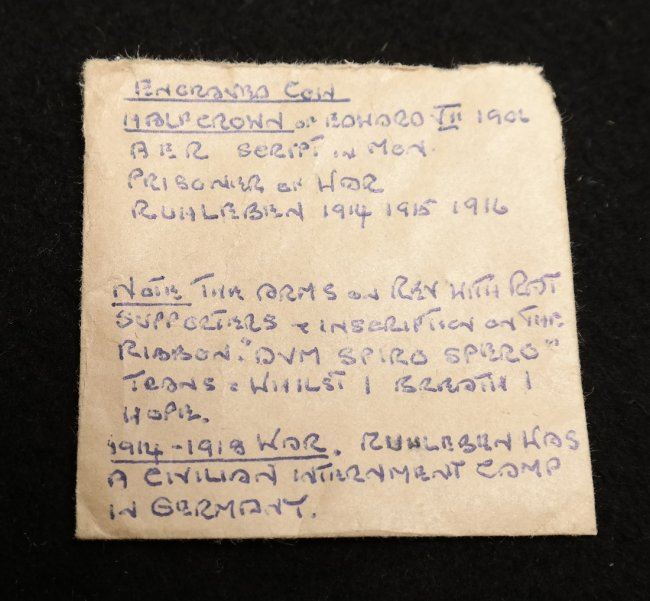 ENGRAVED COIN
HALFCROWN OF EDWARD VII 1906
A E R SCRIPT IN MON.
PRISONER OF WAR
RUHLEBEN 1914 1915 1916
NOTE THE ARMS ON REV WITH RAT
SUPPORTERS & INSCRIPTION ON THE
RIBBON. "DVM SPIRO SPERO"
TRANS: WHILST I BREATH I
HOPE.
1914-1918 WAR. RUHLEBEN WAS
A CIVILIAN INTERNMENT CAMP
IN GERMANY.